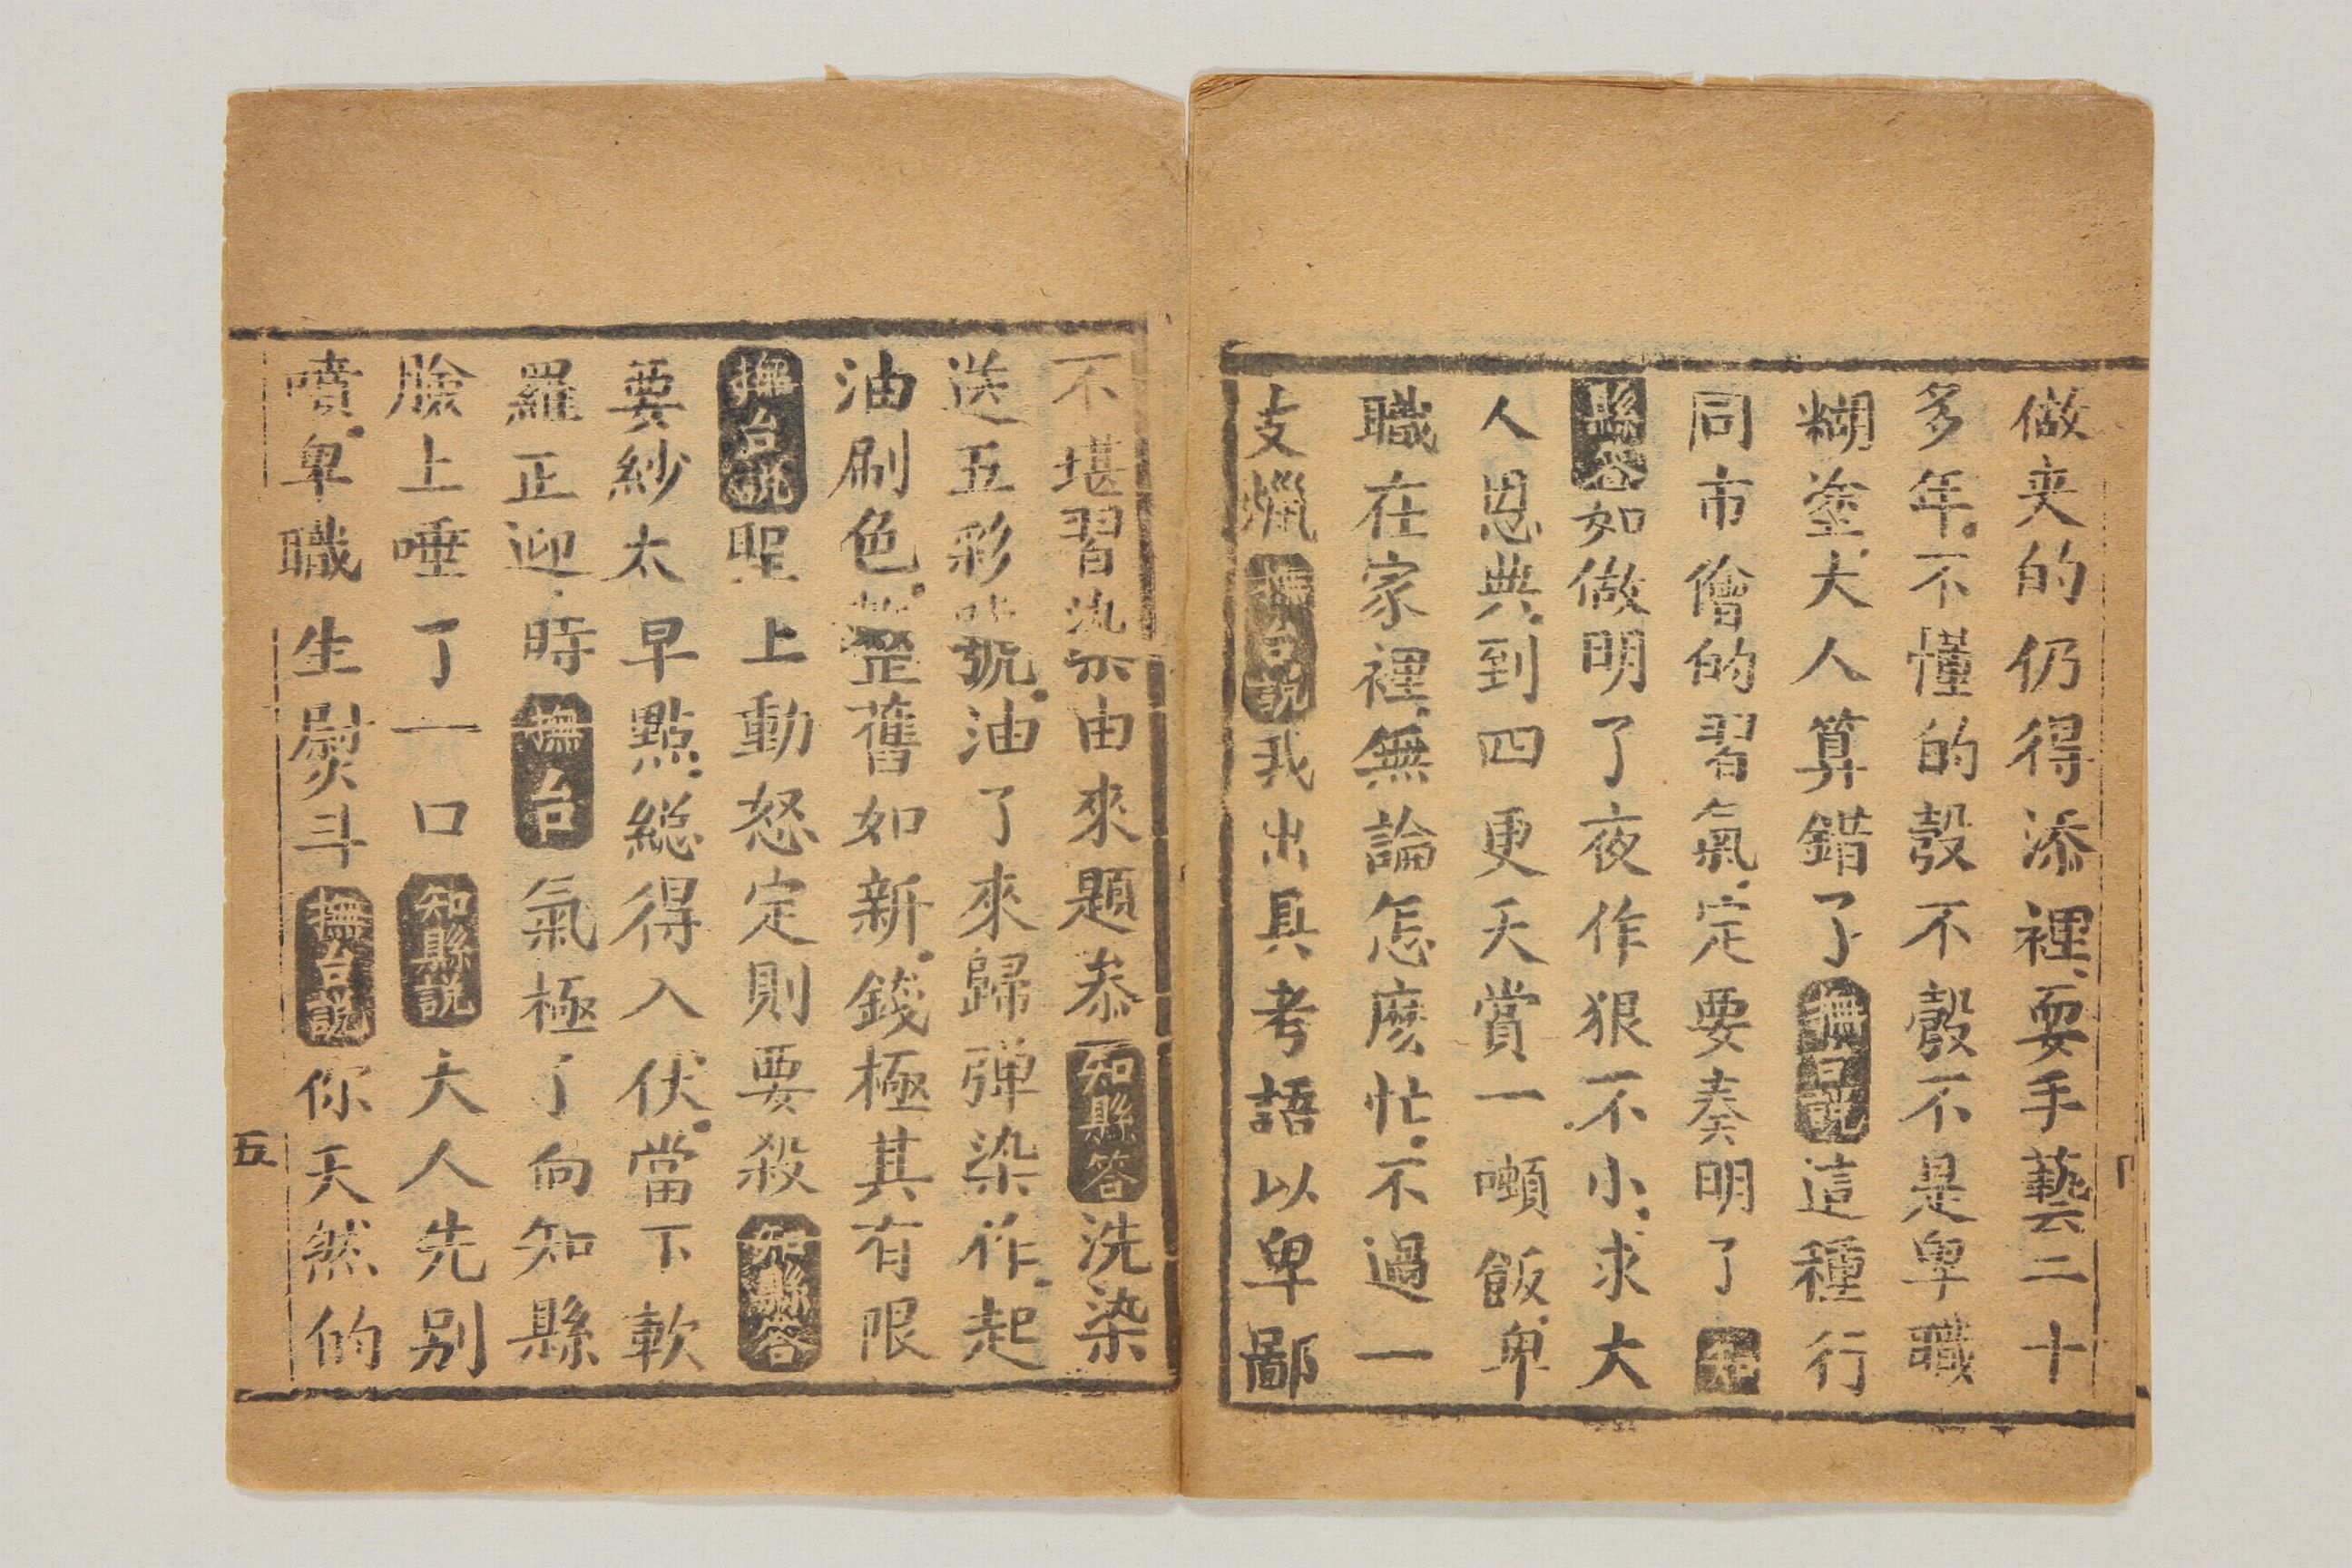 做夾的仍得添裡耍手藝二十
多年不懂的彀不彀不是卑職
糊塗大人算錯了撫台說這種行
同市儈的習氣定要奏明了知
縣答如做明了夜作狠不小求大
人恩典到四更天賞一噸飯卑
職在家裡無論怎麽忙不過一
支爉撫台說我出具考語以卑鄙
不堪習染由來題叅知縣答洗染
送五彩號油了來歸弹染作起
油刷色整舊如新錢極其有限
撫台說聖上動怒定則要殺知縣答
要紗太早點縂得入伏當下軟
羅正迎時撫台氣極了向知縣
臉上唾了一口知縣説大人先别
噴卑職生熨斗撫台說你天然的
五